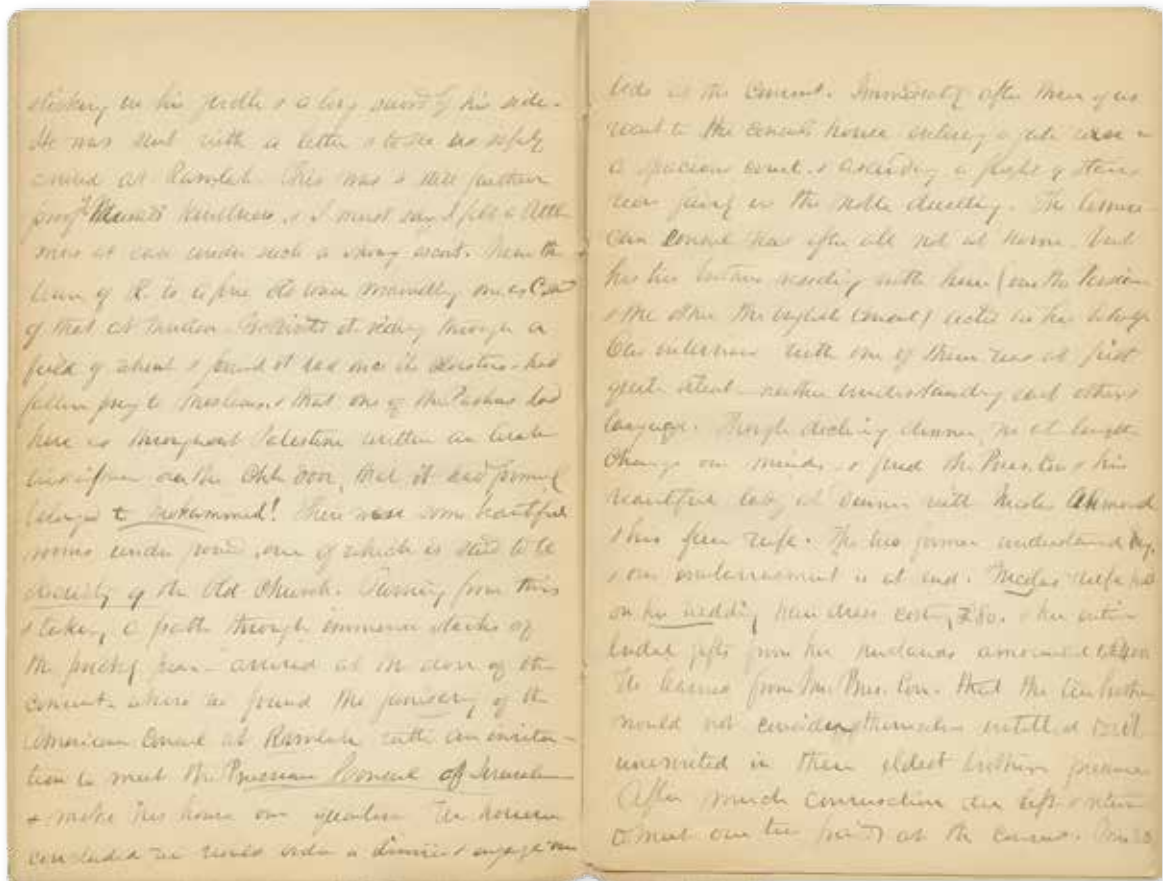 sticking in his girdle & a long sword by his side.
He was sent with a letter & to see us safely
arrived at Ramleh. This was a still further
proof Murad's kindness, & I must say I felt a little
more at ease under such a strong escort. Near the
town of R. is a fine old tower
of that at riding through a
field of wheat & found it had once its cloisters - had
fallen prey to Moslems & that one of the Pashas had
here as throughout Palestine written an Arab
over the Chh door, that it had formerly
belonged to Mohammed! There were some beautiful
rooms under ground, one of which is said to be
of the Old Church. Turning from this
& taking a path through immense stacks of
the prickly pear - arrived at the door of the
convent - where we found the janisary of the
American Consul at Ramleh with an invita-
tion to meet the Prussian Consul of Jerusalem
& make his house our quarters. We however
concluded we would order a dinner & engage our
beds at the convent. Immediately after three of us
went to the consul's house entering a gate
a spacious court & ascending a flight of stairs
in the noble dwelling. The Ameri-
can Consul was after all not at home but
his two brothers residing with him (one the
& the other the English Consul) acted in his behalf.
Our interview with one of them was at first
quite silent - neither understanding each other's
language. Though declining dinner, we at length
change our minds & find the Prus. Con & his
beautiful lady at dinner with
& his fine wife. The two former understand Eng.
& our embarrassment is at end. wife had
on her wedding head dress costing £80. & her entire
bridal gifts from her husband amounted
We learned from the Prus. Con. that the two brothers
would not consider themselves entitled to sit
uninvited in their eldest brother's presence
After much conversation we left & return
to meet our two friends at the convent.